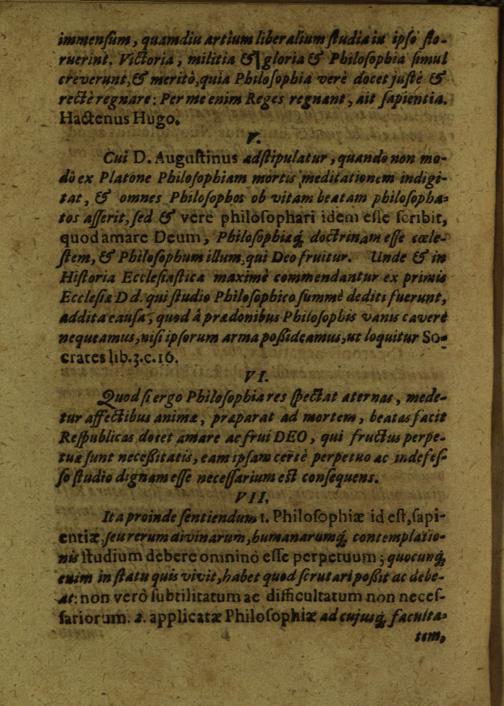 immensũm, quamdiu artium liberalium studia in ipso flo-
ruerint. Victoria, militia & gloria & Philosophia simul
creverunt, & meritò, quia Philosophia verè docet justè &
rectè regnare: Per me enim Reges regnant, ait sapientia.
Hactenus Hugo.
V.
Cui D. Augustinus adstipulatur, quando non mo-
dò ex Platone Philosophiam mortis meditationem indigi-
tat, & omnes Philosophos ob vitam beatam philosopha-
tos asserit, sed & verè philosophari idem esse scribit,
quod amare Deum, Philosophiaq́; doctrinam esse cœle-
stem, & Philosophum illum, qui Deo fruitur. Unde & in
Historia Ecclesiastica maximè commendantur ex primis
Ecclesiæ Dd. qui studio Philosophico summè dediti fuerunt,
addita causa, quod â prædonibus Philosophis vanis cavere
nequeamus, nisi ipsorum arma possideamus, ut loquitur So-
crates lib. 3. c. 16.
VI.
Quod si ergo Philosophia res spectat æternas, mede-
tur affectibus animæ, præparat ad mortem, beatas facit
Respublicas, docet amare ac frui DEO, qui fructus perpe-
tuæ sunt necessitatis, eam ipsam certè perpetuo ac indefes-
so studio dignam esse necessarium est consequens.
VII.
Ita proinde sentiendum 1. Philosophiæ id est, sapi-
entiæ, seu rerum divinarum, humanarumq́; contemplatio-
nis studium debere omnino esse perpetuum; quocunq́;
enim in statu quis vivit, habet quod scrutari possit ac debe-
at: non verò subtilitatum ac difficultatum non neces-
sariorum. 2. applicatæ Philosophiæ ad cujusq́; faculta-
tem,